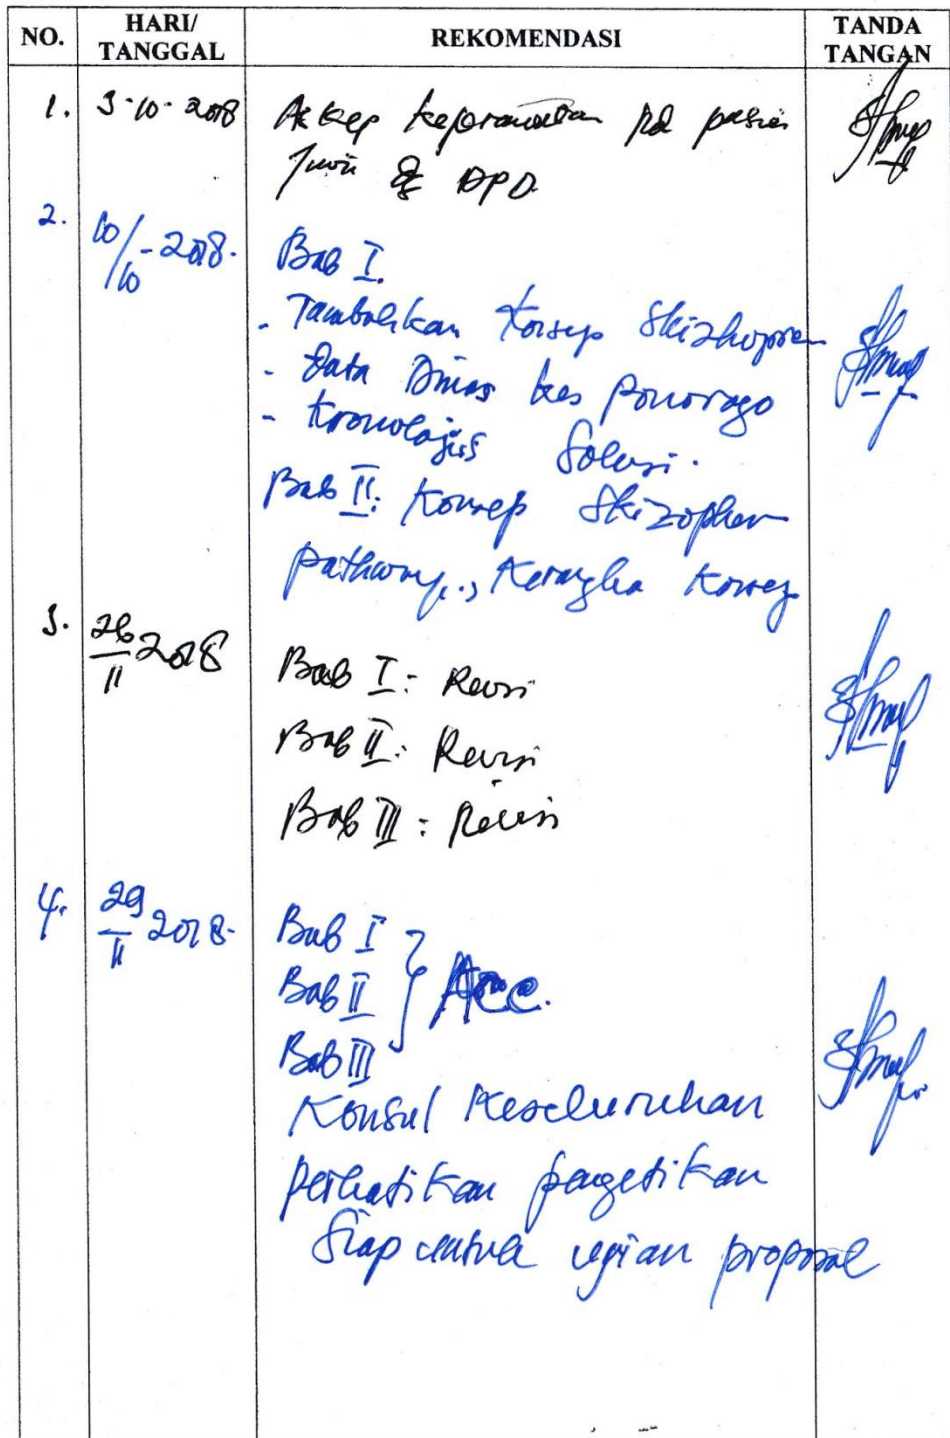 NO. HARI/ TANGGAL REKOMENDASI TANDA TANGAN
1. 3-10-2018 Askep keperawatan pd pasien
Jiwa dg DPD.
2. 10/10-2018. Bab I.
- Tambahkan Konsep Skizhopren
- Data Dinas kes Ponorogo
- Kronologis Solusi.
Bab II: Konsep Skizophren
pathway, Kerangka Konsep
3. 26/11 2018 Bab I: Revisi
Bab II: Revisi
Bab III: Revisi
4. 29/11 2018. Bab I
Bab II } Acc.
Bab III
Konsul Keseluruhan
perhatikan pengetikan
Siap untuk ujian proposal